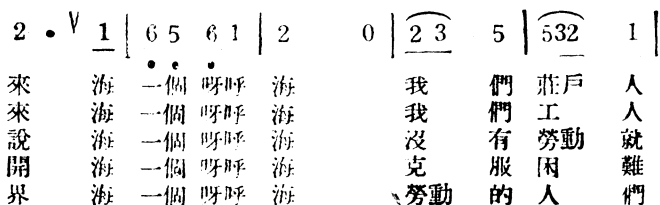 2 • V 1 | 6 5 6 1 | 2 0 | 2 3 5 | 532 1 |
來 海 一個 呀呼 海 我 們 莊戶 人
來 海 一個 呀呼 海 我 們 工 人
說 海 一個 呀呼 海 沒 有 勞動 就
開 海 一個 呀呼 海 克 服 困 難
界 海 一個 呀呼 海 勞動 的 人 們